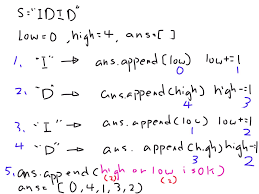 S="IDID"
low=0, high=4, ans=[ ]
1. "I" → ans.append(low) low+=1
0 1
2. "D" → ans.append(high) high-=1
4 3
3. "I" → ans.append(low) low+=1
1 2
4 "D" → ans.append(high) high-=1
3 2
5. ans.append(high or low is ok)
(2) (2)
ans=[0,4,1,3,2)